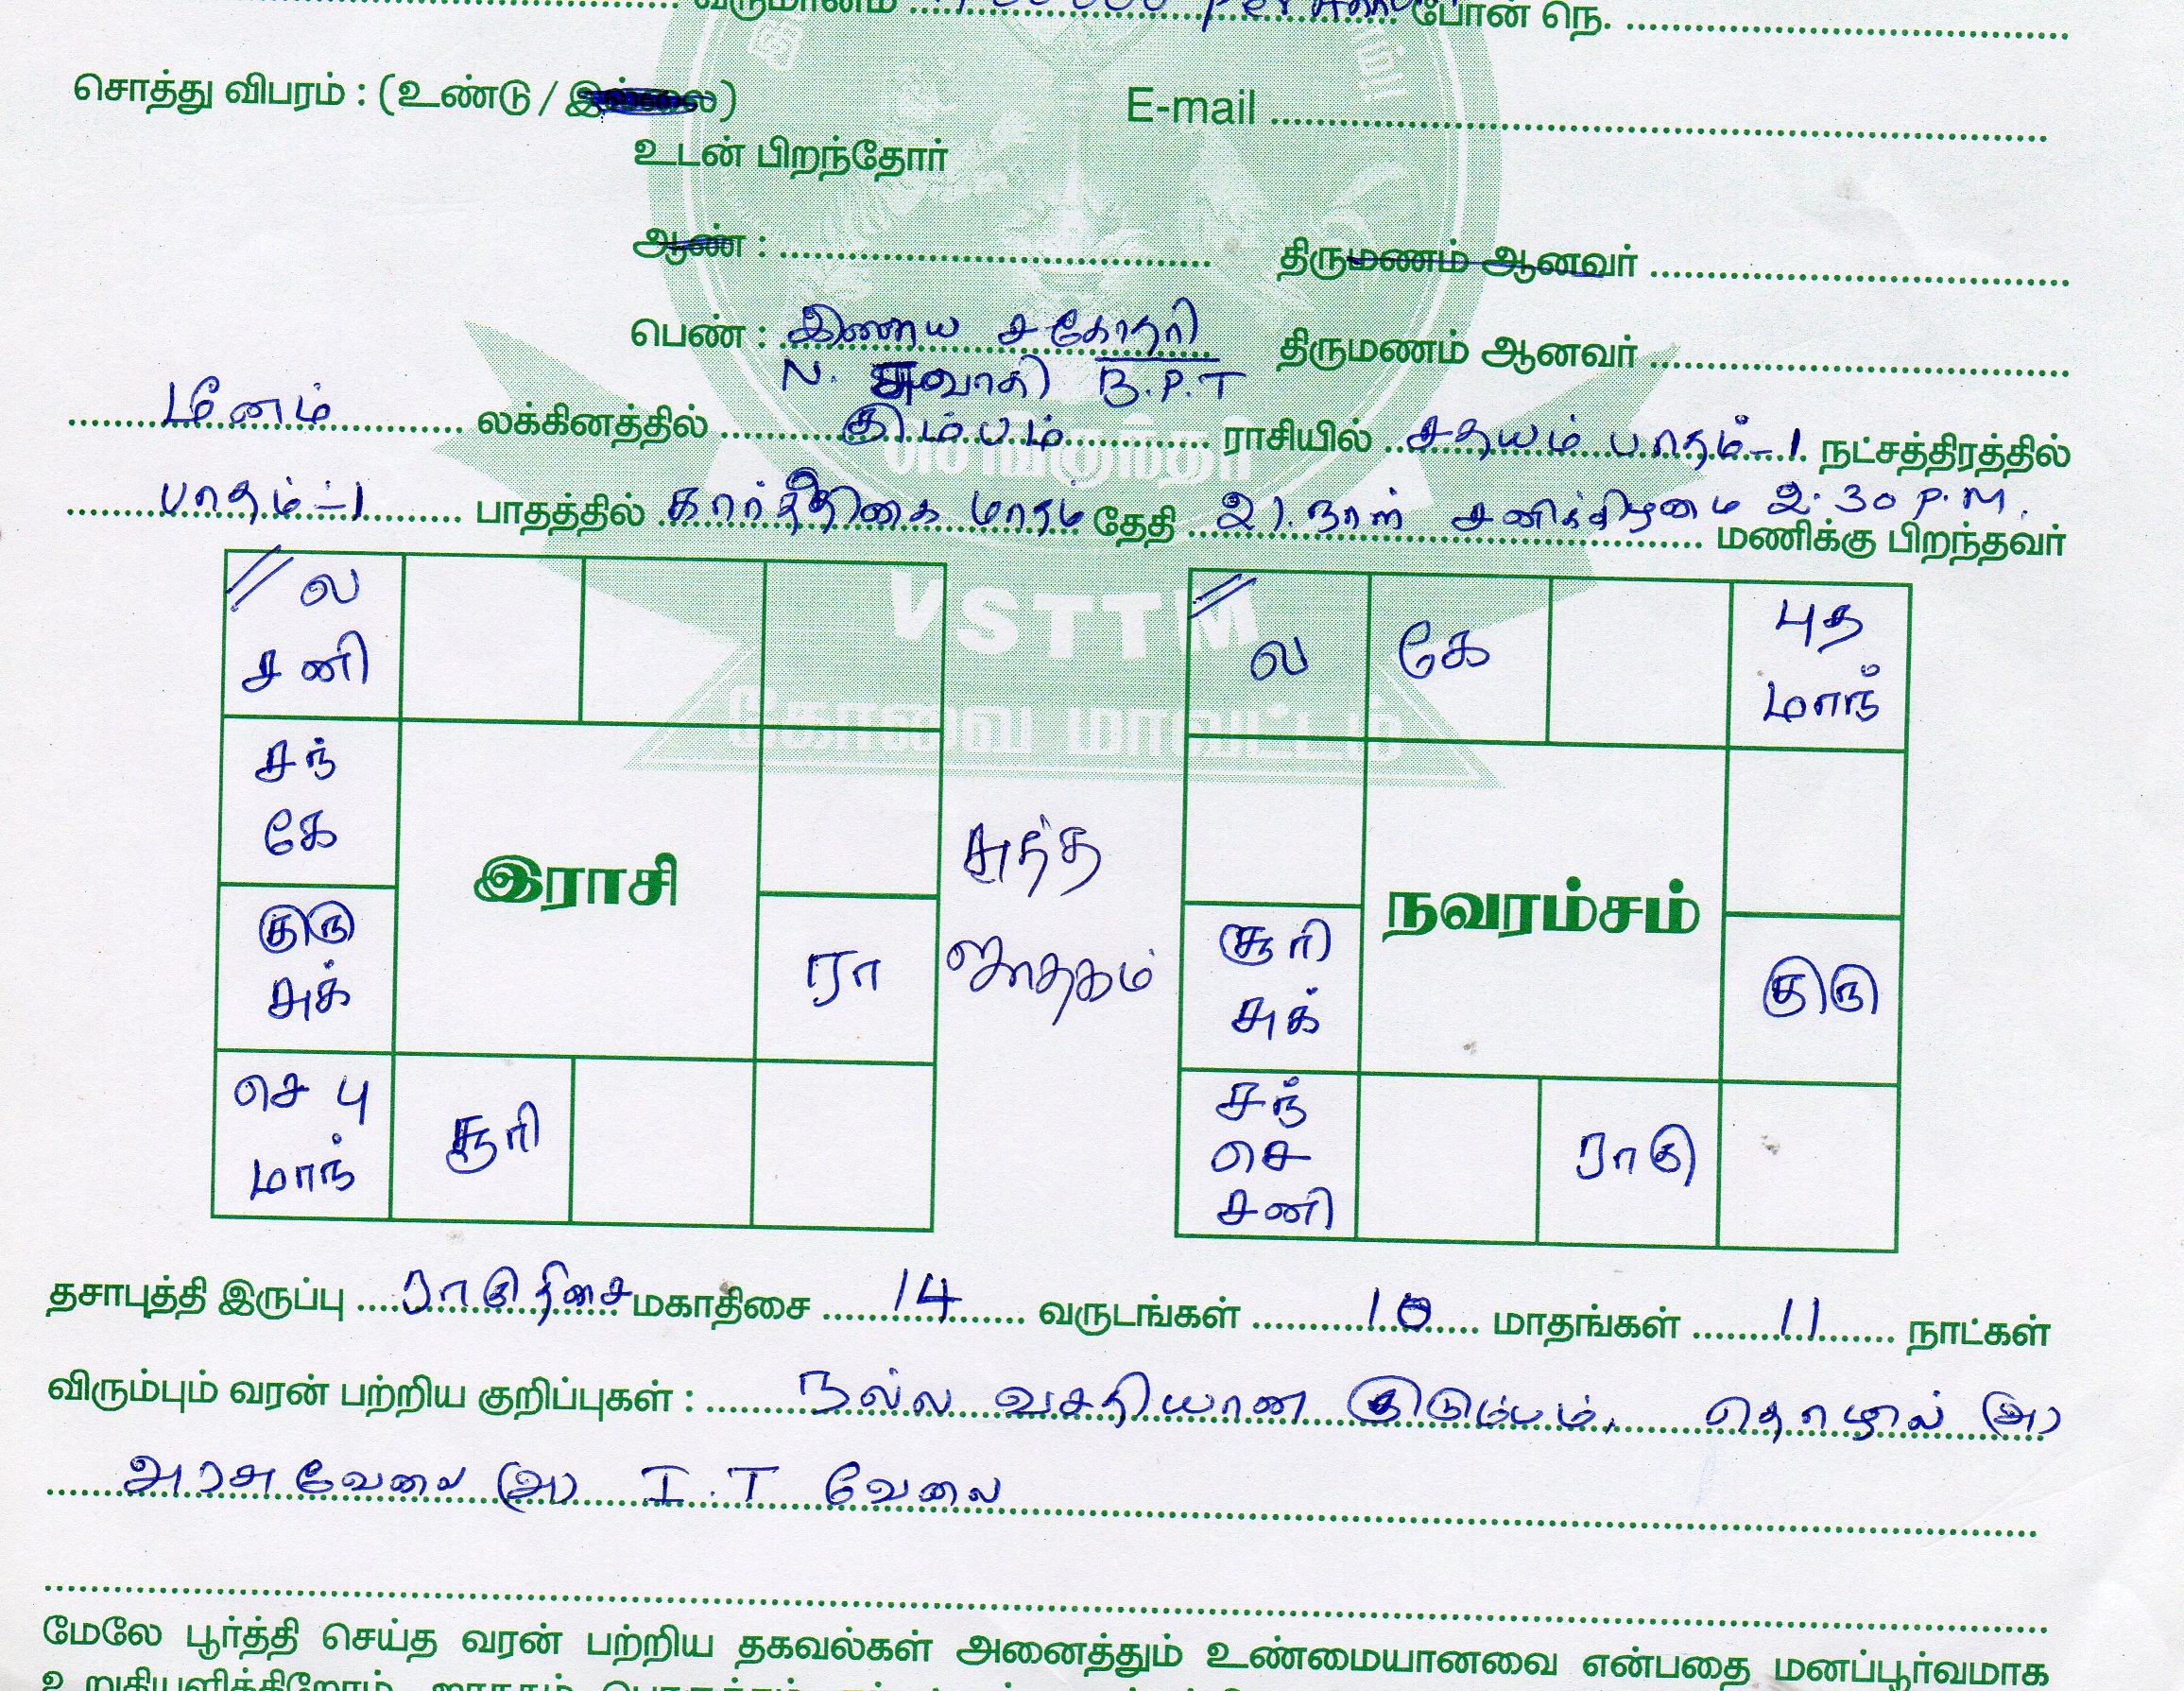 வருமானம் போன் நெ.
சொத்து விபரம் : (உண்டு / இல்லை) E-mail
உடன் பிறந்தோர்
ஆண் : திருமணம் ஆனவர்
பெண் : இளைய சகோதரி திருமணம் ஆனவர்
N. B.P.T
மீனம் லக்கினத்தில் கும்பம் ராசியில் சதயம் பாதம்-1 நட்சத்திரத்தில்
பாதம்-1 பாதத்தில் கார்த்திகை மாதம் தேதி 21.நாள் சனிக்கிழமை 2.30 P.M. மணிக்கு பிறந்தவர்
VSTTM
கோவை மாவட்டம்
ல
சனி
சந்
கே
குரு
சுக்
செ பு
மாந்
சூரி
ரா
இராசி
சுத்த
ஜாதகம்
ல
கே
புத
மாந்
சூரி
சுக்
குரு
சந்
செ
சனி
ராகு
நவரம்சம்
தசாபுத்தி இருப்பு ராகுதிசை மகாதிசை 14 வருடங்கள் 10 மாதங்கள் 11 நாட்கள்
விரும்பும் வரன் பற்றிய குறிப்புகள் : நல்ல வசதியான குடும்பம், தொழில் (அ)
அரசு வேலை (அ) I.T வேலை
மேலே பூர்த்தி செய்த வரன் பற்றிய தகவல்கள் அனைத்தும் உண்மையானவை என்பதை மனப்பூர்வமாக